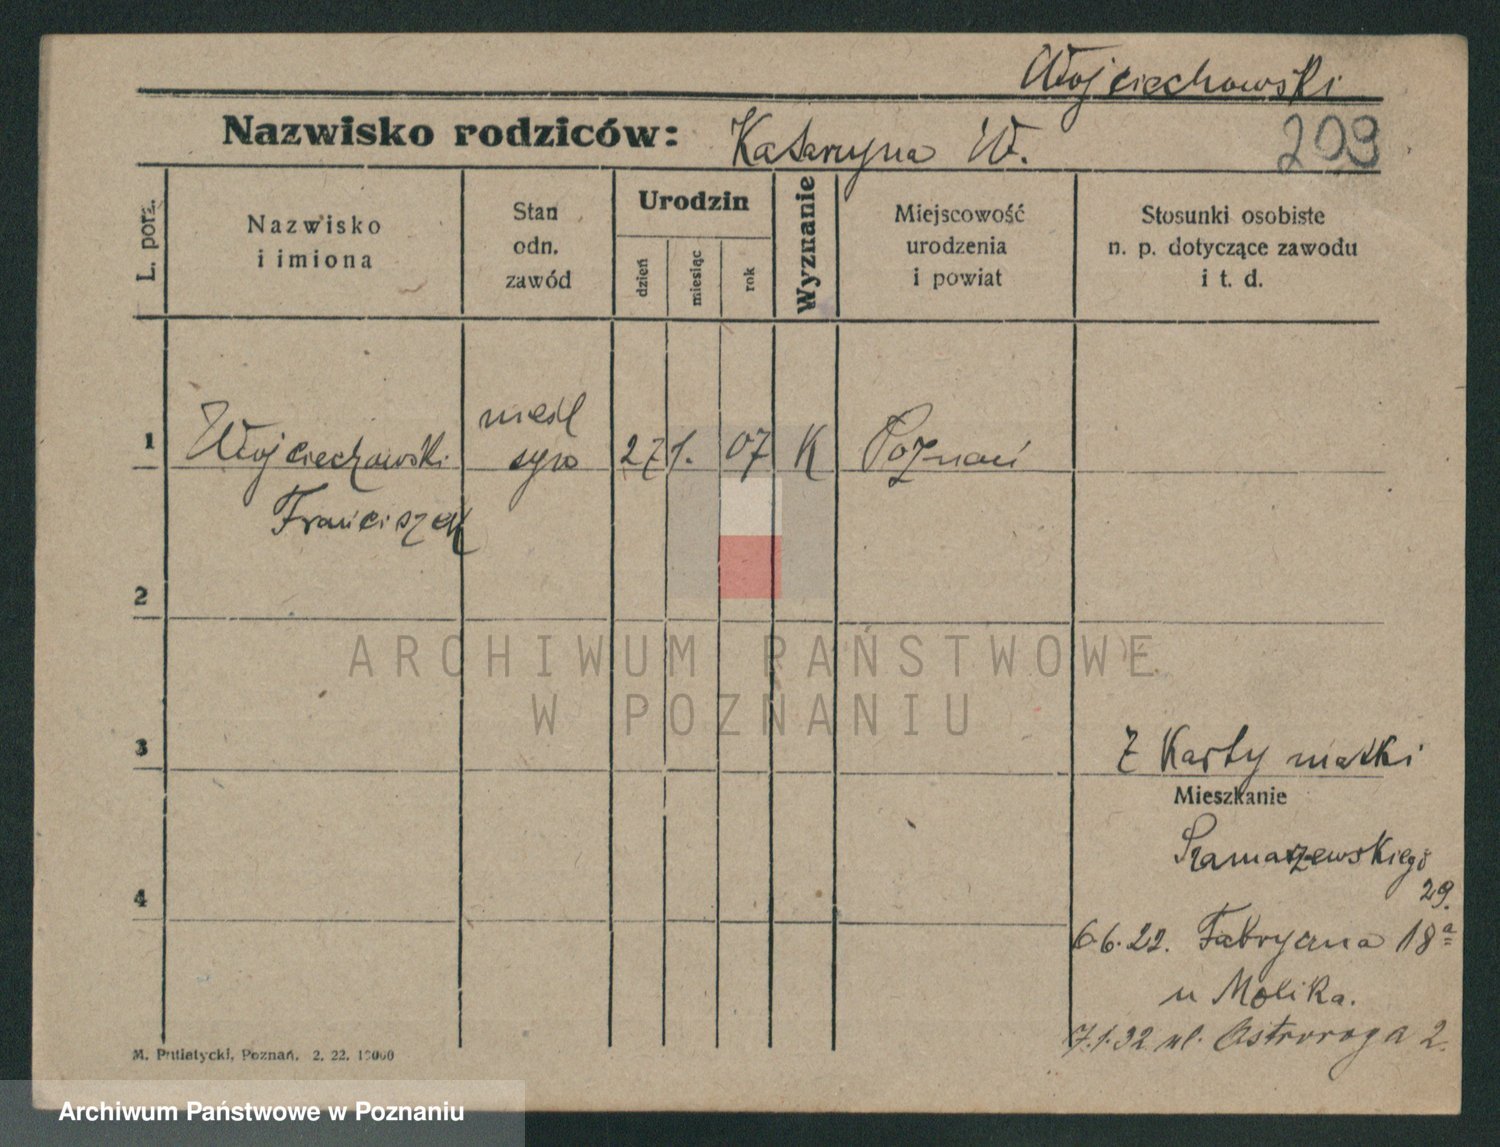 Wojciechowski
Nazwisko rodziców: Katarzyna W.
209
L. porz.
Nazwisko
i imiona
Stan
odn.
zawód
Urodzin
dzień
miesiąc
rok
Wyznanie
Miejscowość
urodzenia
i powiat
Stosunki osobiste
n. p. dotyczące zawodu
i t. d.
1 Wojciechowski
Franciszek
nieśl
syn
27 1. 07 K Poznań
2
ARCHIWUM PAŃSTWOWE
W POZNANIU
3
Z Karty matki
Mieszkanie
Szamarzewskiego
29.
4
6.6.22. Fabryczna 18a
u Molika.
7.1.32 ul. Ostroroga 2.
M. Putiatycki, Poznań. 2. 22. 15000
Archiwum Państwowe w Poznaniu